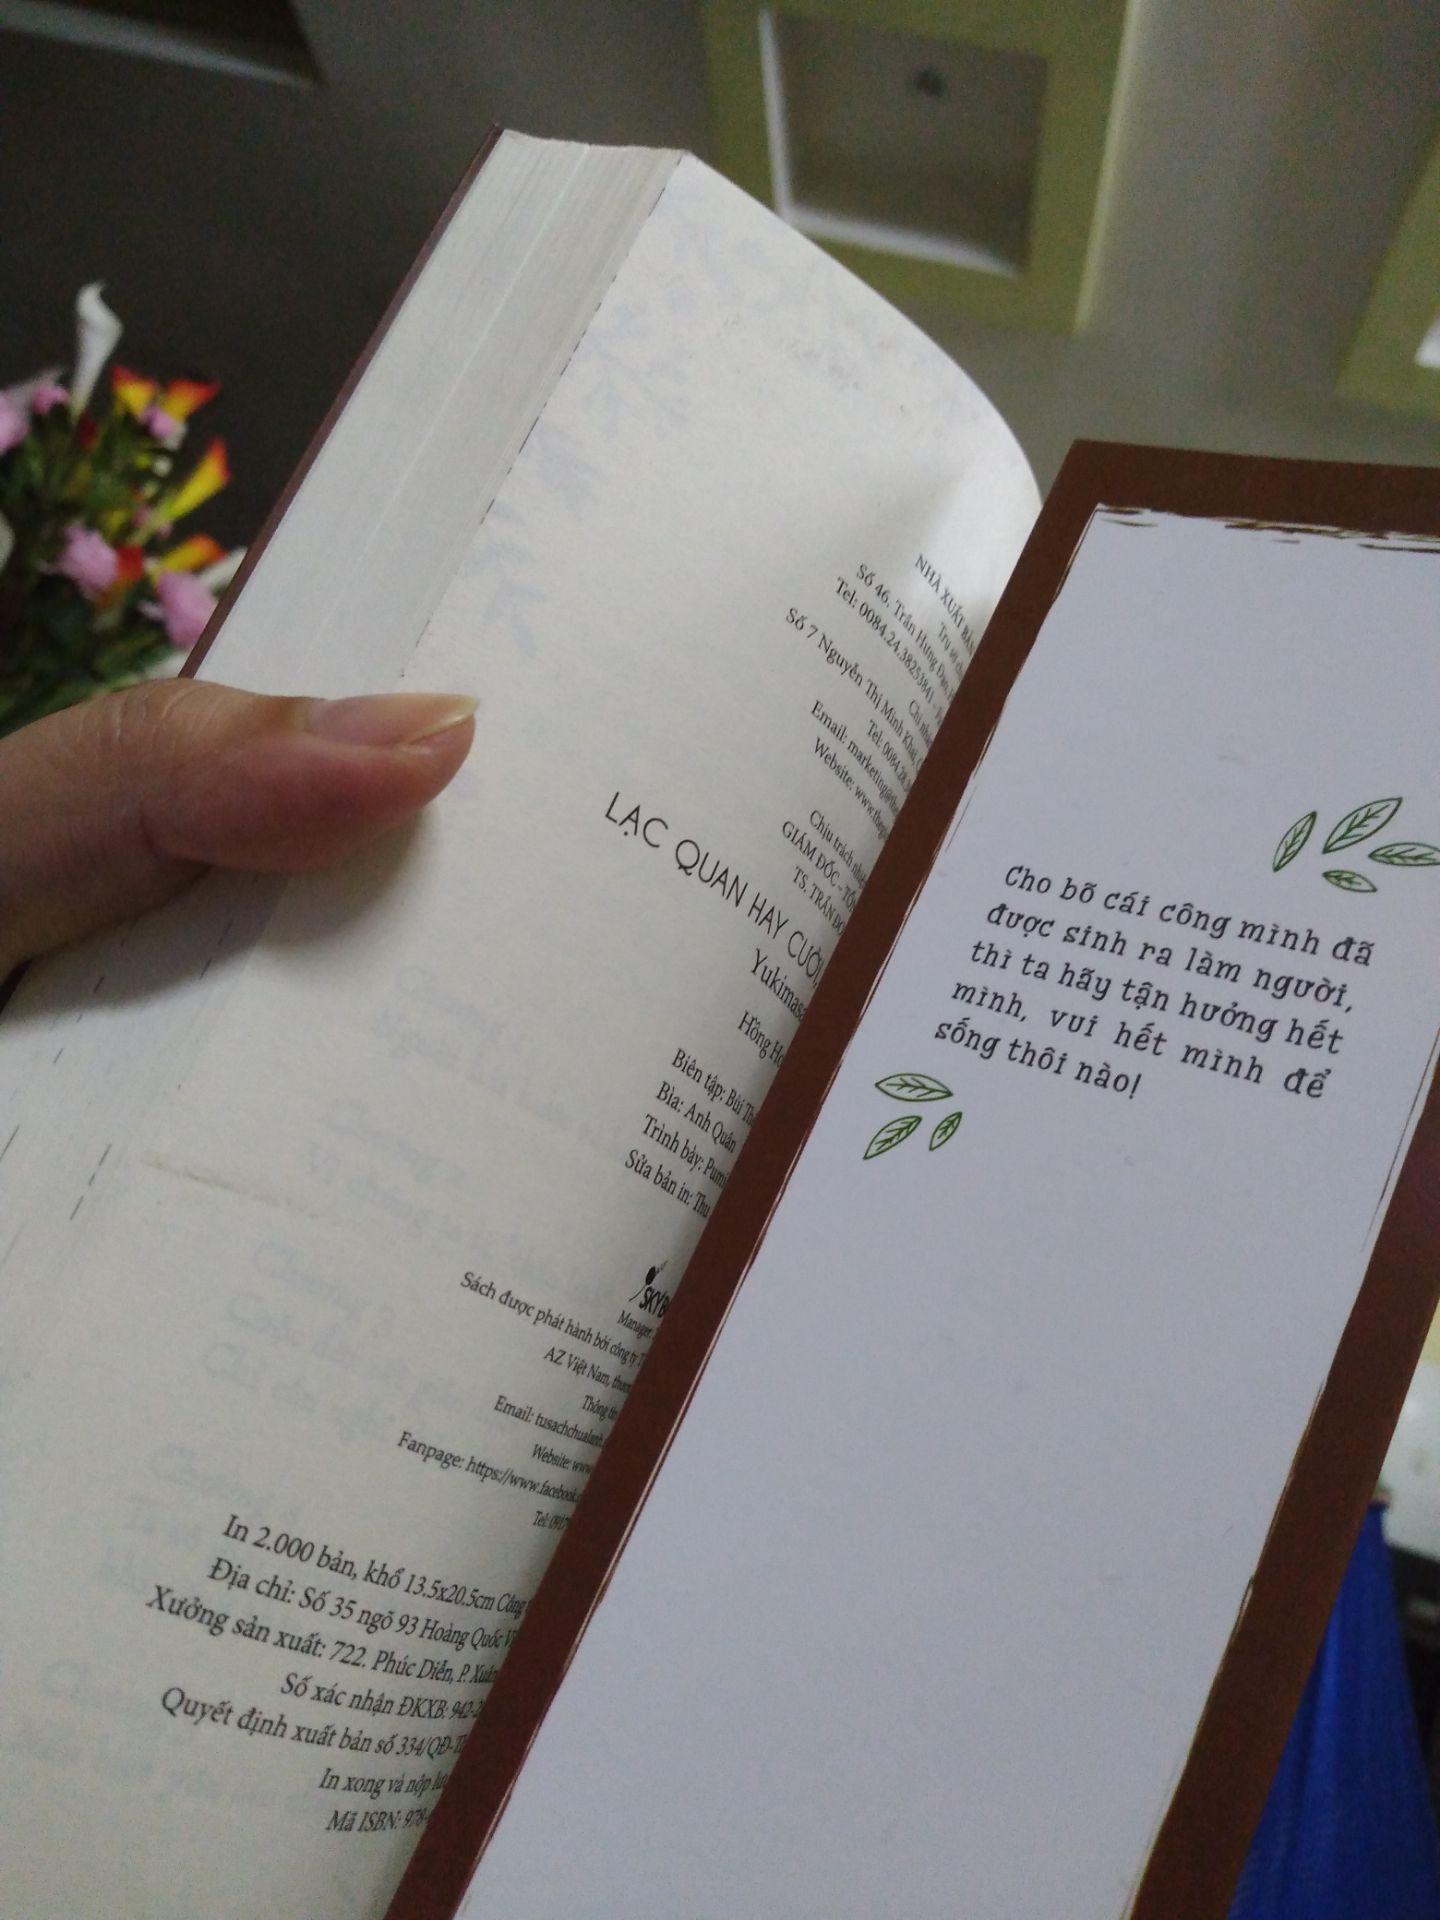 NHÀ XUẤT BẢN
Trụ sở
Số 46. Trần Hưng Đạo,
Tel: 0084.24.38253841 -
Chi
Số 7 Nguyễn Thị Minh Khai,
Tel: 0084.28.
Email: marketing@
Website: www.
Chịu trách
GIÁM ĐỐC -
TS. TRẦN
LẠC QUAN HAY CƯỜI,
Hồng
Biên tập: Bùi
Bìa: Anh Quân
Trình bày:
Sửa bản in: Thu
Manager:
Sách được phát hành bởi công ty
AZ Việt Nam,
Thông tin
Email:
Website: www
Fanpage: https://www.facebook.
Tel:
In 2.000 bản, khổ 13.5x20.5cm
Địa chỉ: Số 35 ngõ 93 Hoàng Quốc
Xưởng sản xuất: 722. Phúc Diễn, P. Xuân
Số xác nhận ĐKXB: 942-
Quyết định xuất bản số 334/QĐ-
In xong và nộp
Mã ISBN: 978-
Cho bõ cái công mình đã
được sinh ra làm người,
thì ta hãy tận hưởng hết
mình, vui hết mình để
sống thôi nào!